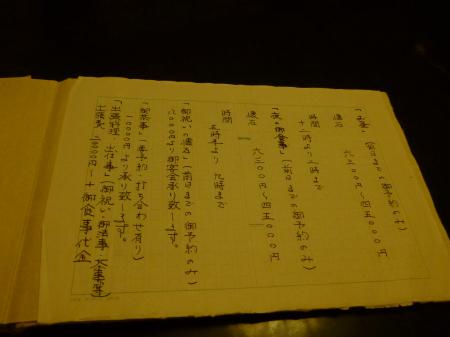 「昼」(前日までの御予約のみ)
懐石 六三〇〇円〜四五〇〇〇円
時間 十二時より二時まで
「夜の御食事」(前日までの御予約のみ)
懐石 六三〇〇円〜四五〇〇〇円
時間 五時半より 九時まで
「御祝いの膳」(前日までの御予約のみ)
00000円より 承り致します。
「御茶事」(要予約・打ち合わせ有り)
10000円より承り致します。
「出張料理・出仕事」(御祝い・御法事・茶事等)
出張費 10000円+御食事代金